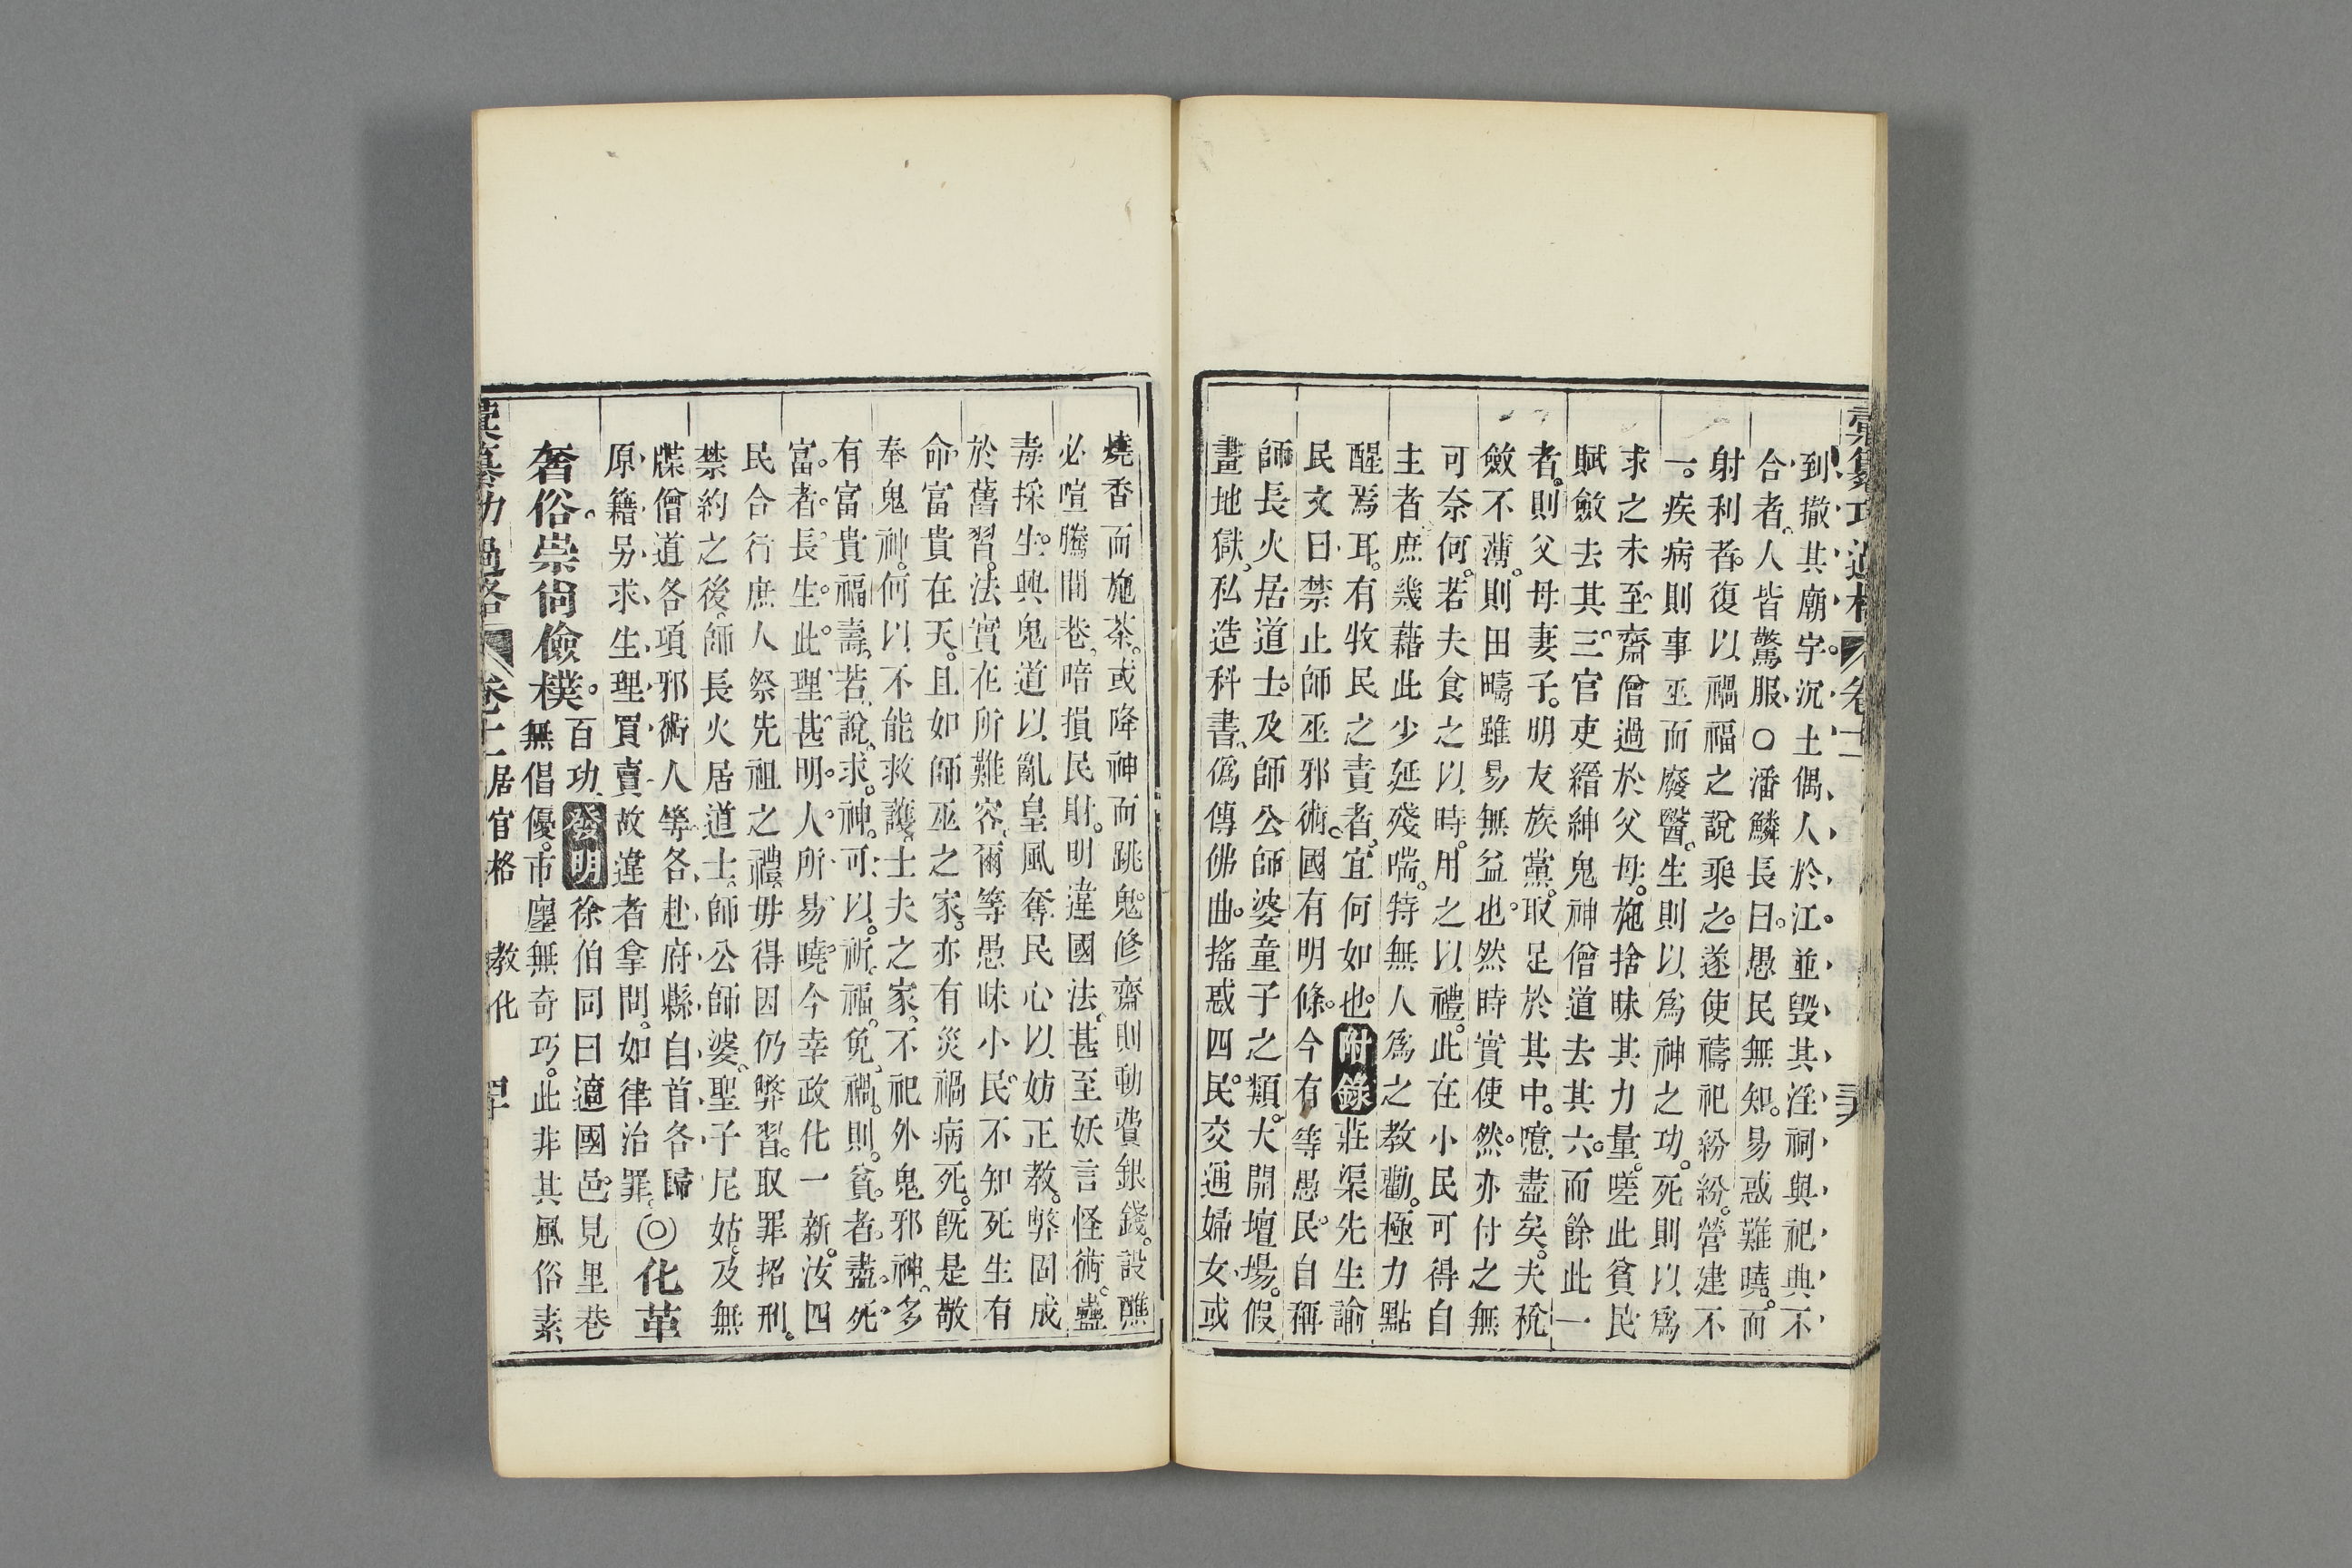 彙纂功過格 卷十二
到撤其廟宇沉土偶人於江並毀其淫祠與祀典不
合者人皆驚服○潘鱗長曰愚民無知易惑難曉而
射利者復以禍福之說乘之遂使禱祀紛紛營建不
一疾病則事巫而廢醫生則以爲神之功死則以爲
求之未至齋僧過於父母施捨昧其力量嗟此貧民
賦斂去其三官吏縉紳鬼神僧道去其六而餘此一
者則父母妻子明友族黨取足於其中噫盡矣夫稅
斂不薄則田疇雖易無益也然時實使然亦付之無
可奈何若夫食之以時用之以禮此在小民可得自
主者庶幾藉此少延殘喘特無人爲之教勸極力點
醒焉耳有牧民之責者宜何如也附錄莊渠先生諭
民文曰禁止師巫邪術國有明條今有等愚民自稱
師長火居道士及師公師婆童子之類大開壇場假
畫地獄私造科書僞傳佛曲搖惑四民交通婦女或
燒香而施茶或降神而跳鬼修齋則動費銀錢設醮
必喧騰閭巷暗損民財明違國法甚至妖言怪術蠱
毒採生興鬼道以亂皇風奪民心以妨正教弊固成
於舊習法實在所難容爾等愚昧小民不知死生有
命富貴在天且如師巫之家亦有災禍病死既是敬
奉鬼神何以不能救護士夫之家不祀外鬼邪神多
有富貴福壽若說求神可以祈福免禍則貧者盡死
富者長生此理甚明人所易曉今幸政化一新汝四
民合行庶人祭先祖之禮毋得因仍弊習取罪招刑
禁約之後師長火居道士師公師婆聖子尼姑及無
牒僧道各項邪術人等各赴府縣自首各歸
原籍另求生理買賣故違者拿問如律治罪◎化革
奢俗崇尚儉樸
百功發明徐伯同曰適國邑見里巷
無倡優市廛無奇巧此非其風俗素
彙纂功過格 卷十二 居官格 教化